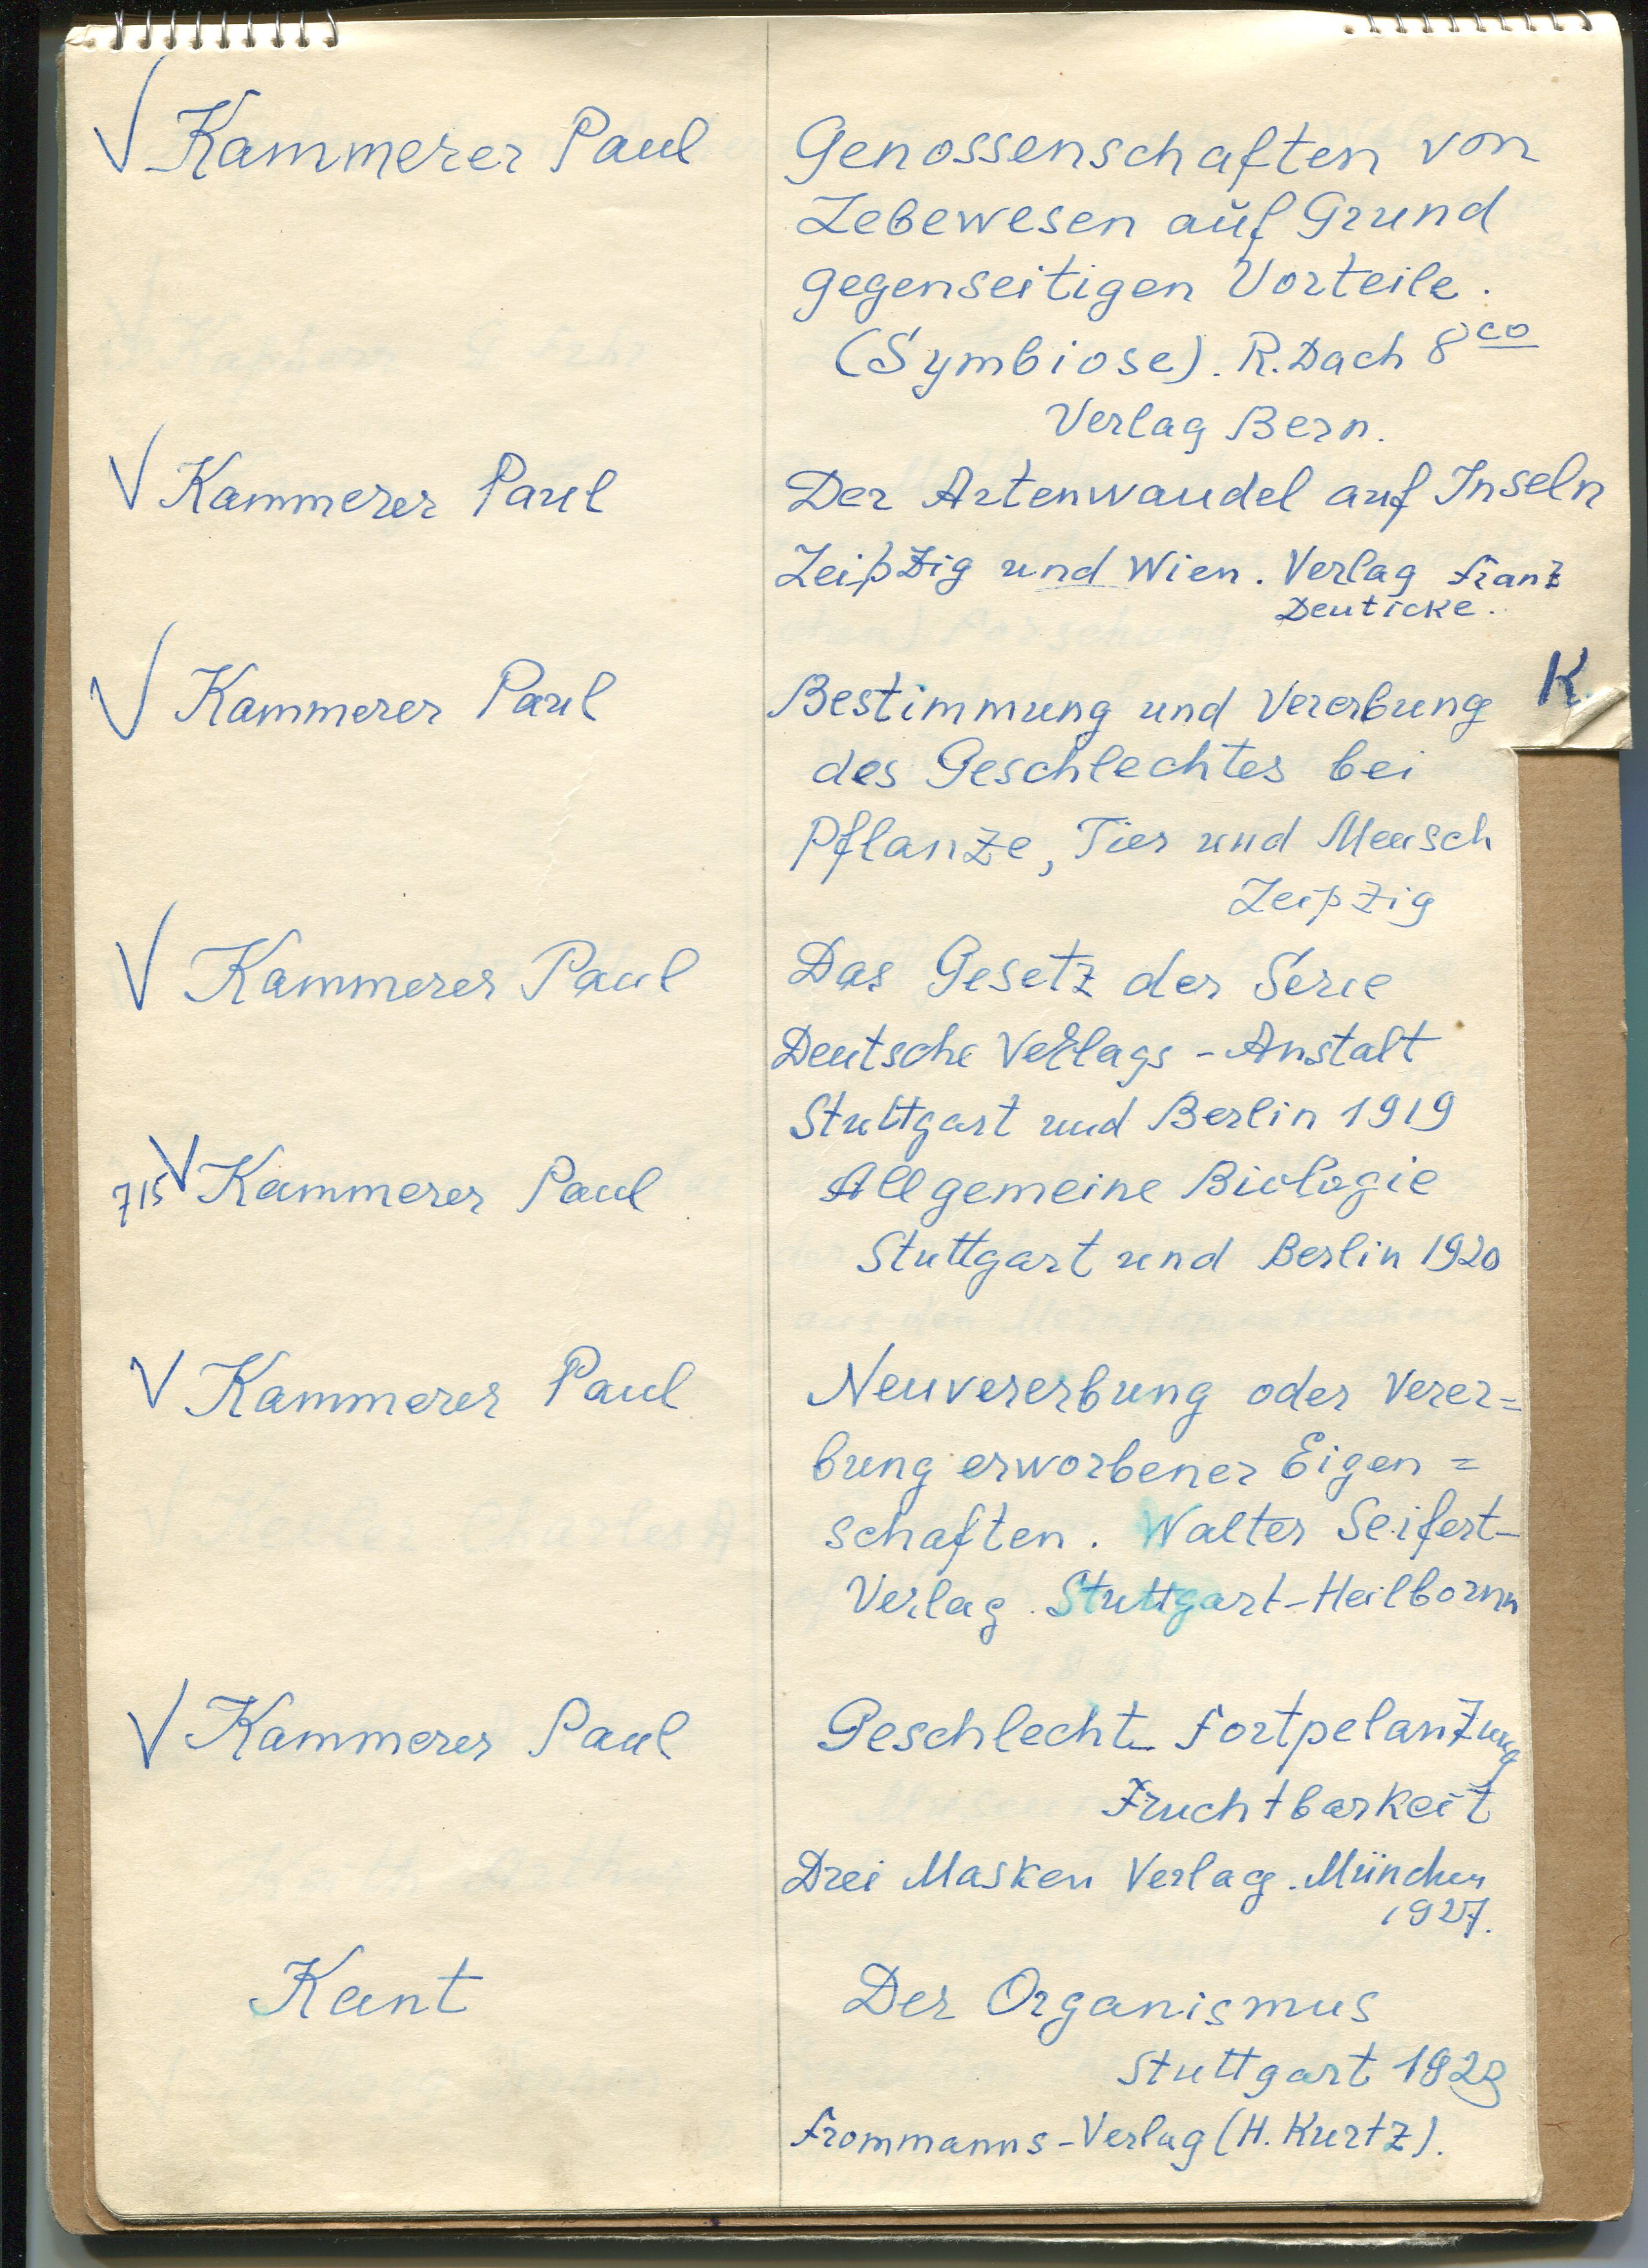 √ Kammerer Paul
Genossenschaften von
Lebewesen auf Grund
gegenseitigen Vorteile.
(Symbiose). R. Dach 8 co
Verlag Bern.
√ Kammerer Paul
Der Artenwandel auf Inseln
Leipzig und Wien. Verlag Franz
Deuticke.
K
√ Kammerer Paul
Bestimmung und Vererbung
des Geschlechtes bei
Pflanze, Tier und Mensch
Leipzig
√ Kammerer Paul
Das Gesetz der Serie
Deutsche Verlags-Anstalt
Stuttgart und Berlin 1919
715 √ Kammerer Paul
Allgemeine Biologie
Stuttgart und Berlin 1920
√ Kammerer Paul
Neuvererbung oder Verer=
bung erworbener Eigen=
schaften. Walter Seifert-
Verlag Stuttgart-Heilbornn
√ Kammerer Paul
Geschlecht Fortpelanzung
Fruchtbarkeit
Drei Masken Verlag. München
1927.
Kant
Der Organismus
Stuttgart
Frommanns-Verlag (H. Kurtz).